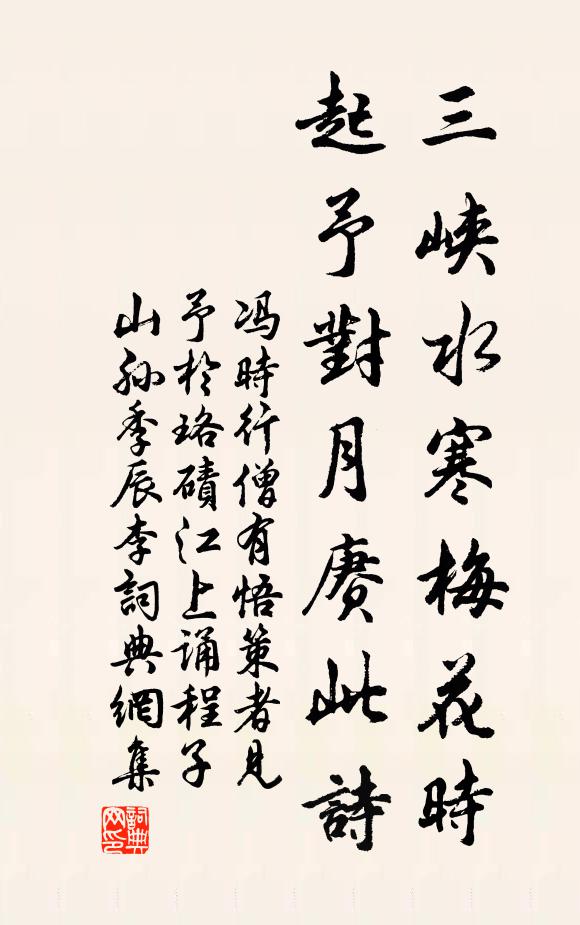 三峽水寒梅花時
起予對月賡此詩
冯時行僧有悟策者見
予於珞磧江上誦程子
山孫季辰李詞典網集
詞典網印